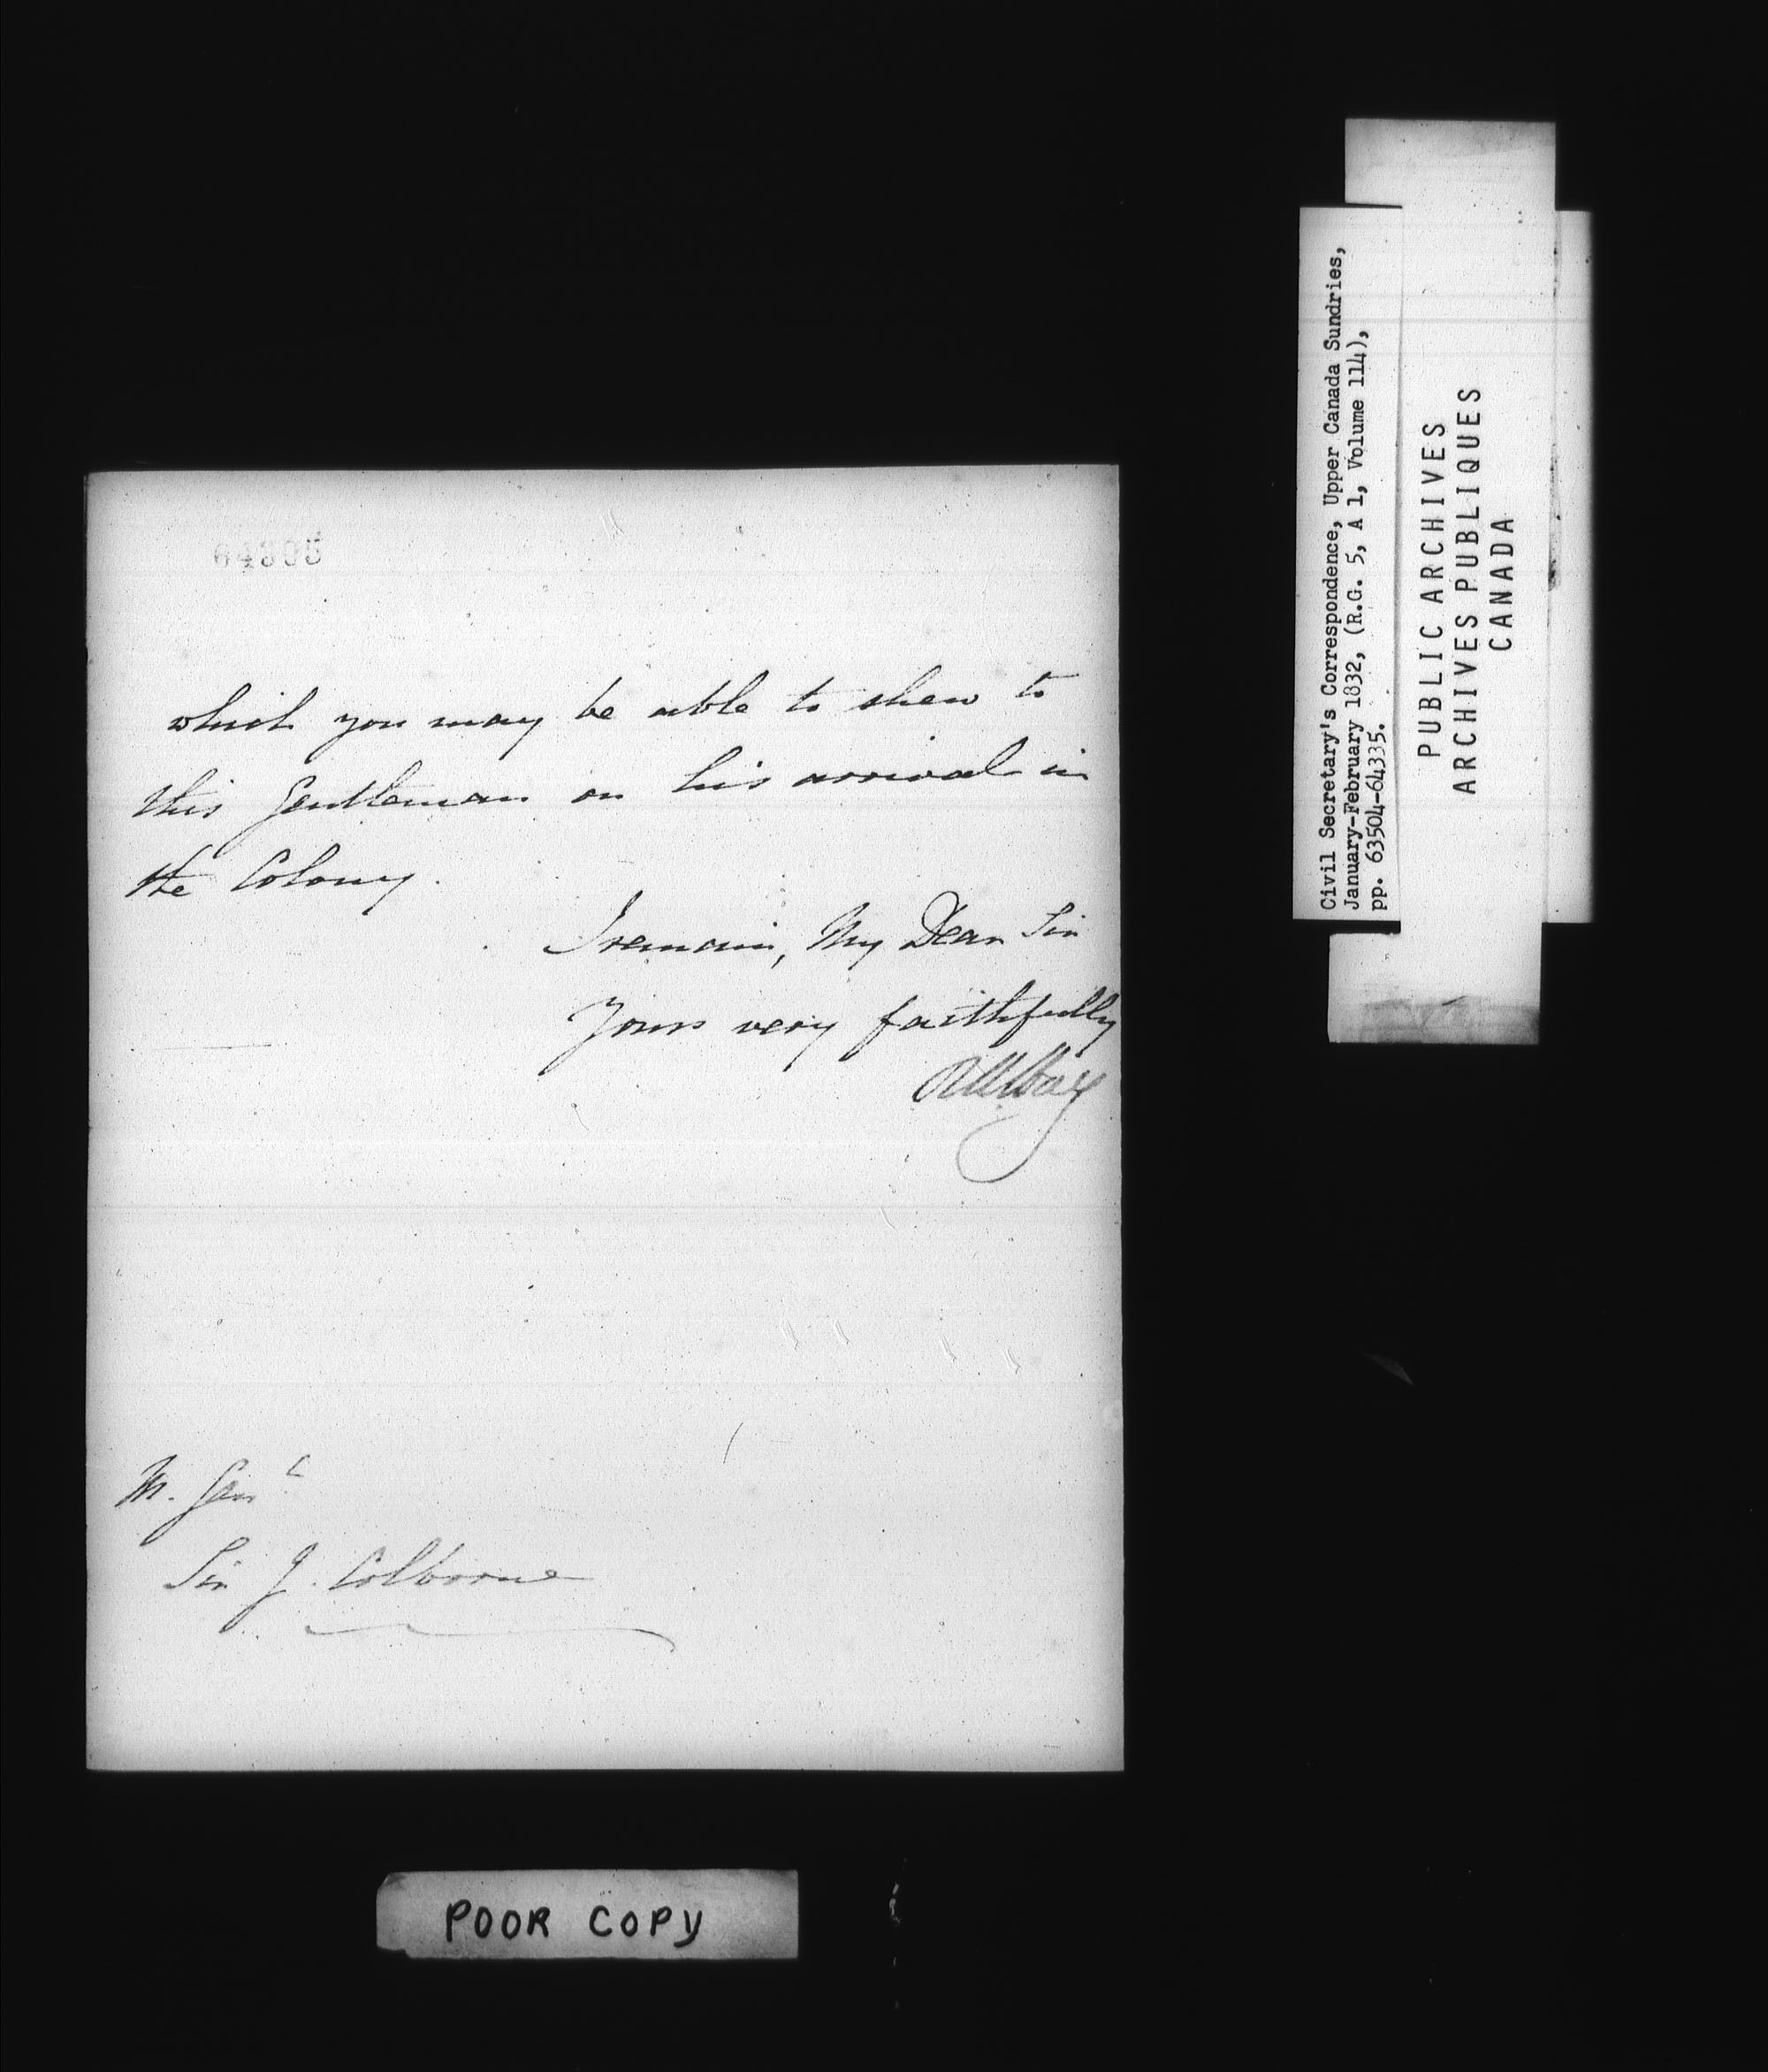 which you may be able to shew to
this Gentleman on his arrival in
the Colony.
I remain, My Dear Sir
Yours very faithfully
RWHay
M. Genl
Sir J. Colborne
POOR COPY
Civil Secretary's Correspondence, Upper Canada Sundries,
January-February 1832, (R.G. 5, A 1, Volume 114),
pp. 63504-64335.
PUBLIC ARCHIVES
ARCHIVES PUBLIQUES
CANADA